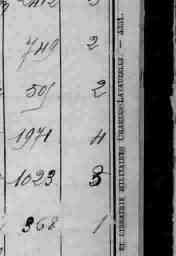 749 2
501 2
1971 4
1023 3
368 1
ET LIBRAIRIE MILITAIRES CHARLES-LAVAUZELLE. —